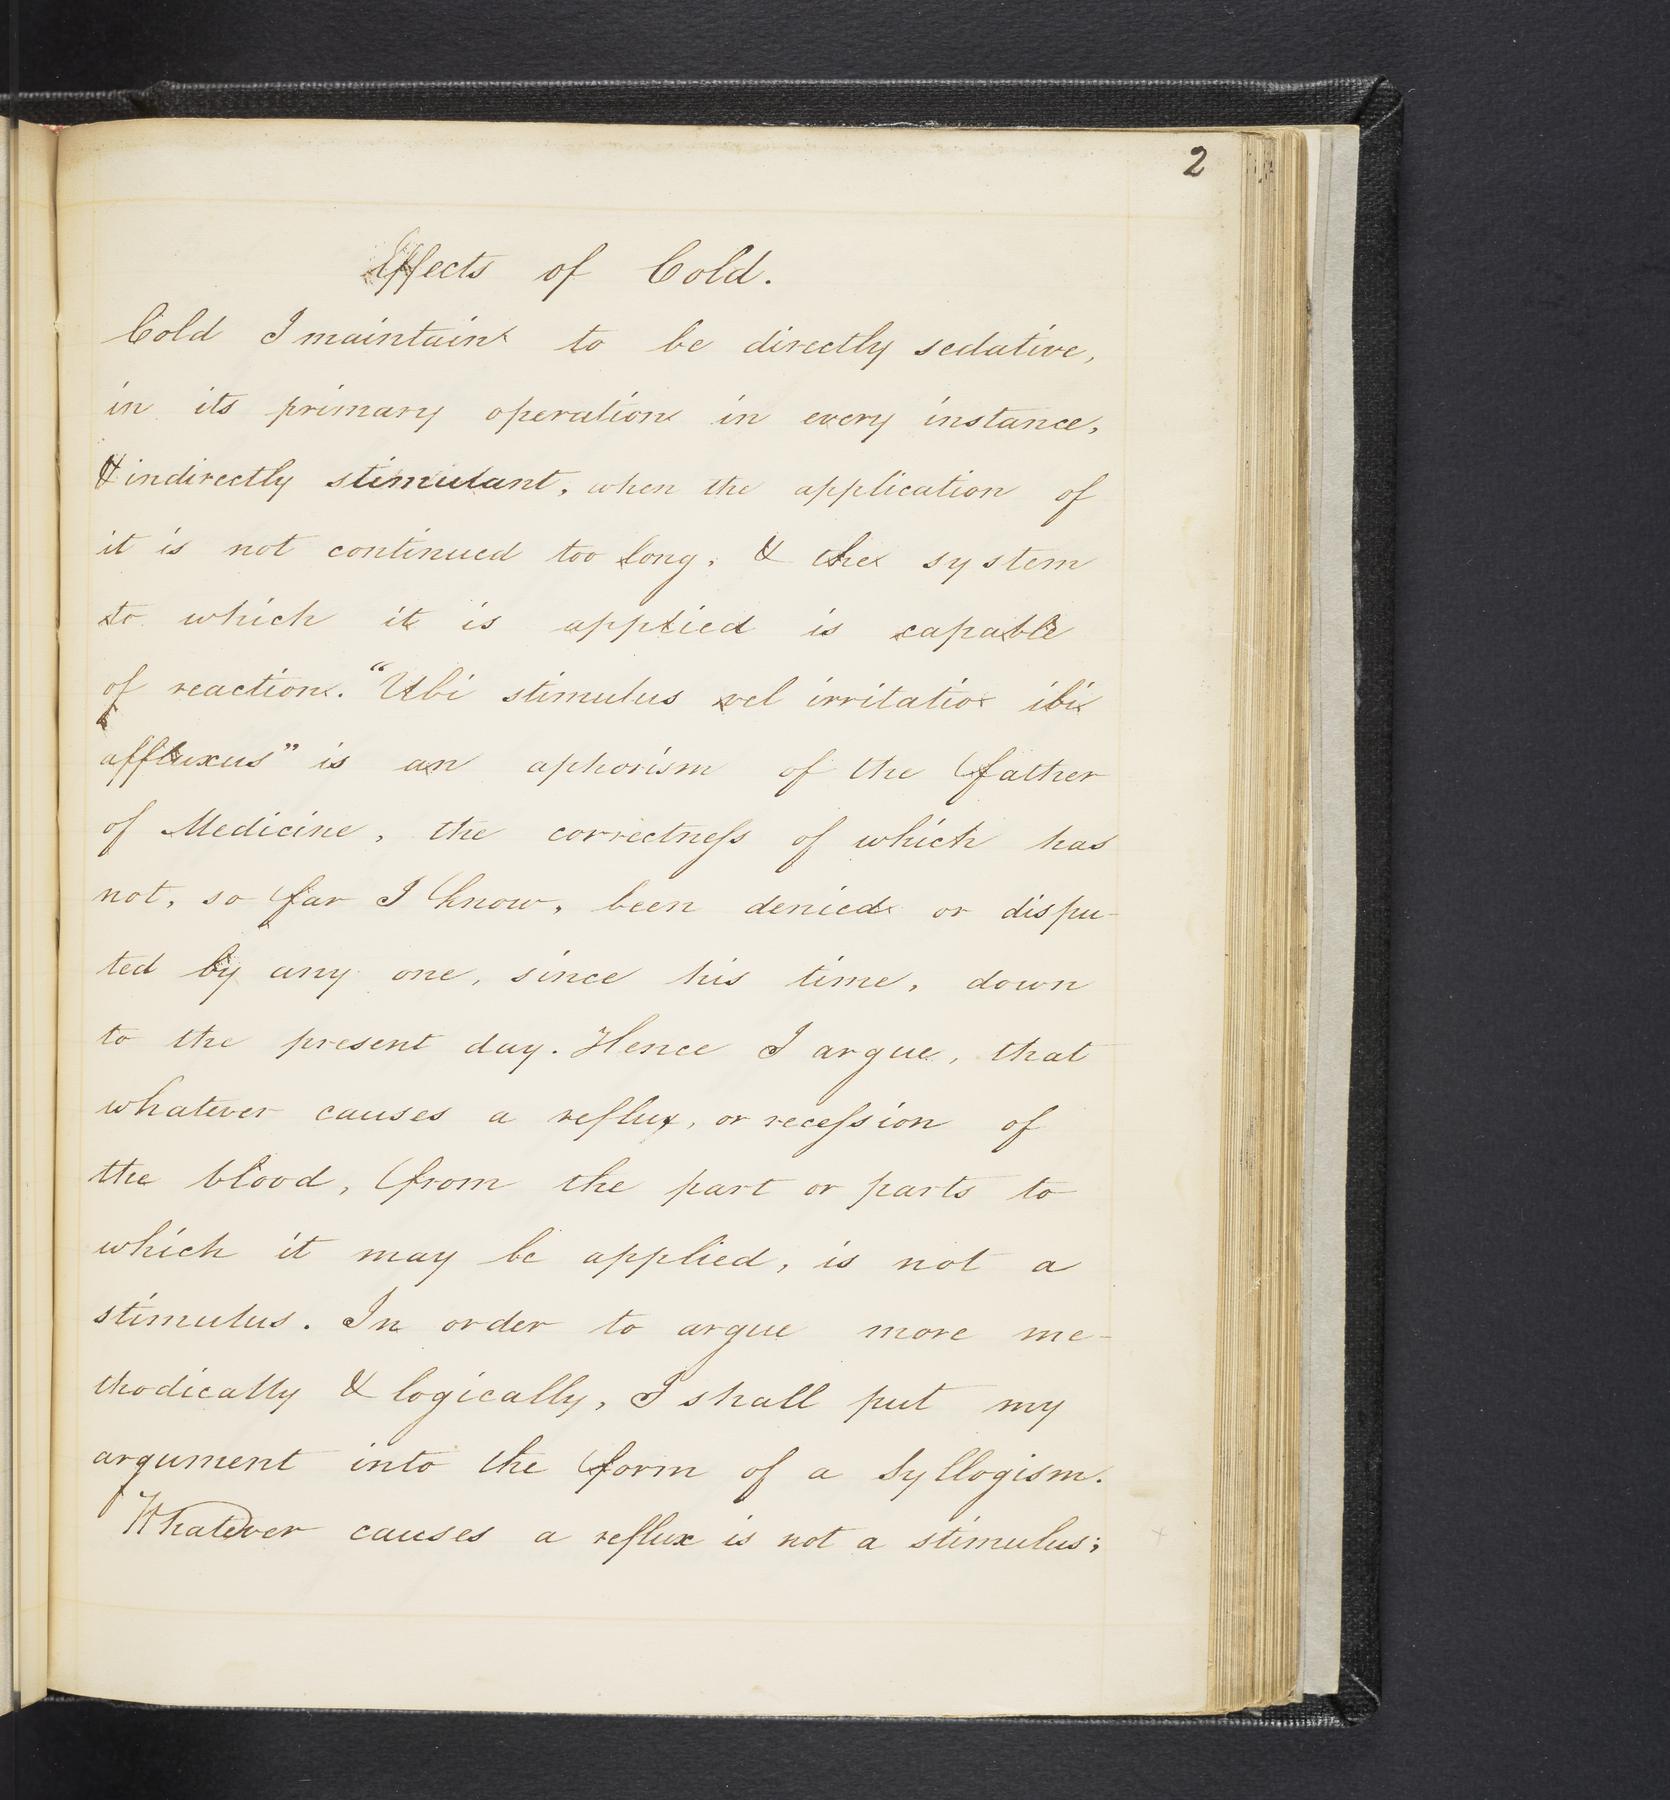 2
Effects of Cold.
Cold I maintain to be directly sedative,
in its primary operation in every instance,
& indirectly stimulant, when the application of
it is not continued too long, & the system
to which it is applied is capable
of reaction. "Ubi stimulus vel irritatio ibi
affluxus" is an aphorism of the father
of Medicine, the correctneſs of which has
not, so far I know, been denied or dispu-
ted by any one, since his time, down
to the present day. Hence I argue, that
whatever causes a reflux, or receſsion of
the blood, from the part or parts to
which it may be applied, is not a
stimulus. In order to argue more me-
thodically & logically, I shall put my
argument into the form of a Syllogism.
Whatever causes a reflux is not a stimulus;